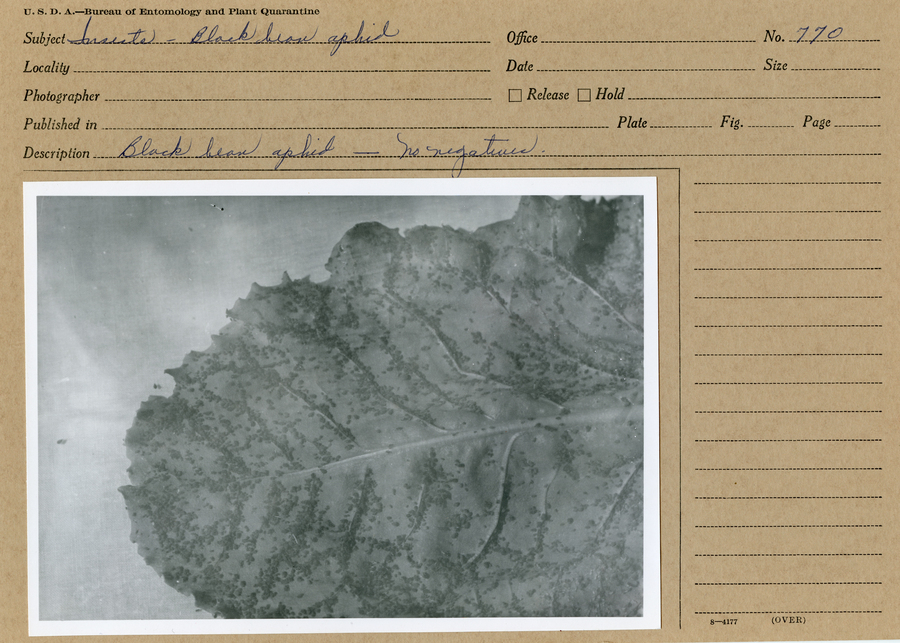 U. S. D. A.—Bureau of Entomology and Plant Quarantine
Subject Insects - Black bean aphid Office No. 770
Locality Date Size
Photographer Release Hold
Published in Plate Fig. Page
Description Black bean aphid — No negatives.
8—4177 (OVER)